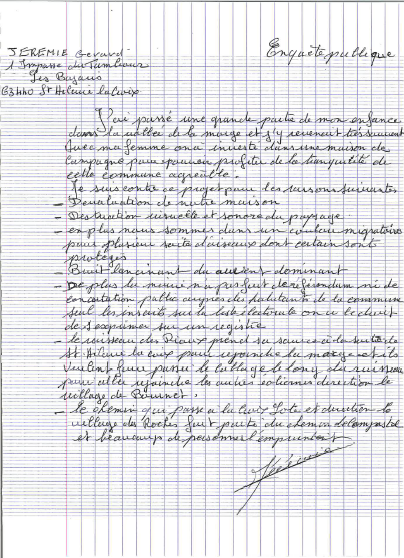 JEREMIE Gerard
1 Impasse du Tambour
Les Bazans
63440 St Hilaire la Croix
Enquête publique
J'ai passé une grande partie de mon enfance
dans la vallée de la morge et j'y revenait très souvent
Avec ma femme on a investi dans une maison de
Campagne pour pouvoir profiter de la tranquilité de
cette commune agréable.
Je suis contre ce projet pour les raisons suivantes
- Dévaluation de notre maison
- Destruction visuelle et sonore du paysage
- en plus nous sommes dans un couloir migratoire
pour plusieur sorte d'oiseaux dont certain sont
protégés
- Bruit lancinant du au vent dominant
- De plus la mairie n'a pas fait de référendum ni de
concertation public auprès des habitants de la commune
seul les inscrits sur la liste électorale on u le droit
de s'exprimer sur un registre
- le ruisseau des Rioux prend sa source à la sortie de
St Hilaire la Croix pour rejoindre la morge et ils
veulent faire passer le câblage le long du ruisseau
pour aller rejoindre les autres éoliennes direction le
village de
- le chemin qui passe à la Croix et direction le
village des Roches fait partie du chemin de Compostel
et beaucoup de personnes l'empruntent